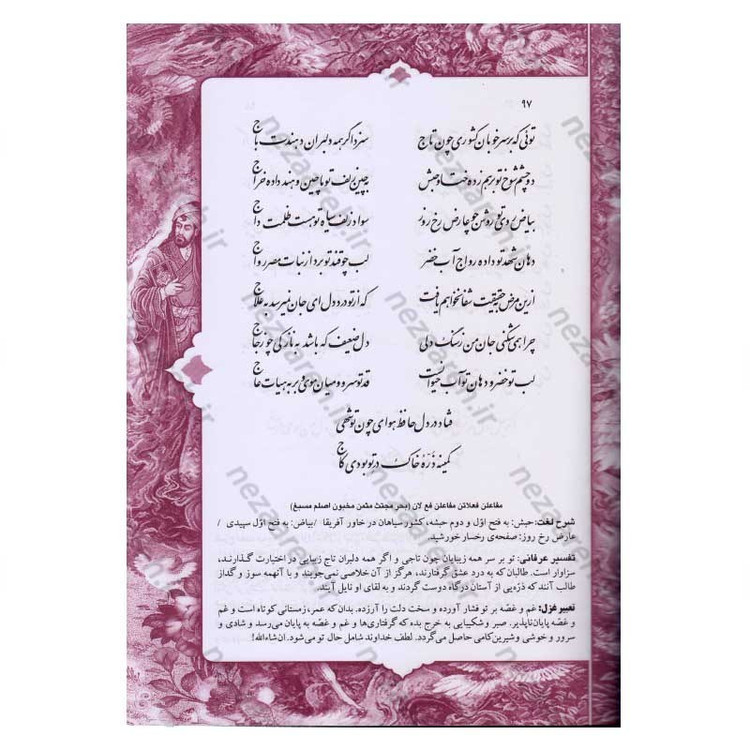 ۹۷
تویی که بر سر خوبان کشوری چون تاج
سزد اگر همه دلبران دهندت باج
دو چشم شوخ تو برهم زده ختا و حبش
به چین زلف تو ماچین و هند داده خراج
بیاض روی تو روشن چو عارض رخ روز
سواد زلف سیاه تو هست ظلمت داج
دهان شهد تو داده رواج آب خضر
لب چو قند تو برد از نبات مصر رواج
ازین مرض به حقیقت شفا نخواهم یافت
که از تو درد دل ای جان نمی‌رسد به علاج
چرا همی شکنی جان من ز سنگ دلی
دل ضعیف که باشد به نازکی چو زجاج
لب تو خضر و دهان تو آب حیوانست
قد تو سرو و میان موی و بر به هیات عاج
فتاد در دل حافظ هوای چون تو شهی
کمینه ذرهٔ خاک در تو بودی کاج
مفاعلن فعلاتن مفاعلن فع لان (بحر مجتث مثمن مخبون اصلم مسبغ)
شرح لغت: حبش: به فتح اوّل و دوم حبشه، کشور سیاهان در خاور آفریقا / بیاض: به فتح اوّل سپیدی /
عارض رخ روز: صفحه‌ی رخسار خورشید.
تفسیر عرفانی: تو بر سر همه زیبایان چون تاجی و اگر همه دلبران تاج زیبایی در اختیارت گذارند،
سزاوار است. طالبان که به درد عشق گرفتارند، هرگز از آن خلاصی نمی‌جویند و با آنهمه سوز و گداز
طالب آنند که ذره‌یی از آستان درگاه دوست گردند و به لقای او نایل آیند.
تعبیر غزل: غم و غصّه بر تو فشار آورده و سخت دلت را آزرده. بدان که عمر، زمستانی کوتاه است و غم
و غصّه پایان‌ناپذیر. صبر و شکیبایی به خرج بده که گرفتاری‌ها و غم و غصّه به پایان می‌رسد و شادی و
سرور و خوشی و شیرین‌کامی حاصل می‌گردد. لطف خداوند شامل حال تو می‌شود. ان‌شاءالله!
nezareh.ir